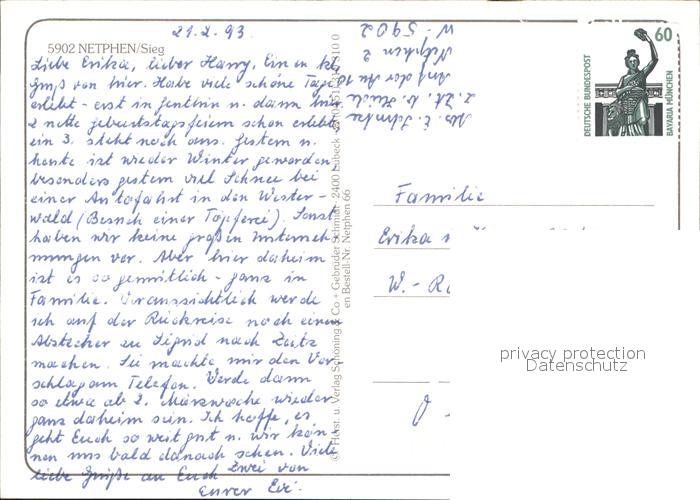 21.2.93.
5902 NETPHEN/Sieg
Liebe Erika, lieber Harry, Einen kl.
Gruß von hier. Habe viele schöne Tage
erlebt - erst in Genthin u. dann hier
2 nette Geburtstagsfeiern schon erlebt,
ein 3. steht noch aus. Gestern u.
heute ist wieder Winter geworden
besonders gestern viel Schnee bei
einer Autofahrt in den Wester-
wald (Besuch einer Töpferei). Sonst
haben wir keine großen Unterneh-
mungen vor. Aber hier daheim
ist es so gemütlich - ganz in
Familie. Voraussichtlich werde
ich auf der Rückreise noch einen
Abstecher zu Sigrid nach Zeitz
machen. Sie machte mir den Vor-
schlag am Telefon. Werde dann
so etwa ab 2. Märzwoche wieder
ganz daheim sein. Ich hoffe, es
geht Euch so weit gut u. wir kön-
nen uns bald danach sehen. Viele
liebe Grüße an Euch Zwei von
Eurer Evi.
Abs. E.
z. Zt. b.
Auf der Au 10
Netphen 2
W-5902
© Horst u. Verlag Schöning & Co + Gebrüder Schmidt · 2400 Lübeck
en Bestell-Nr. Netphen 66
60
DEUTSCHE BUNDESPOST
BAVARIA MÜNCHEN
Familie
Erika
W.-
privacy protection
Datenschutz